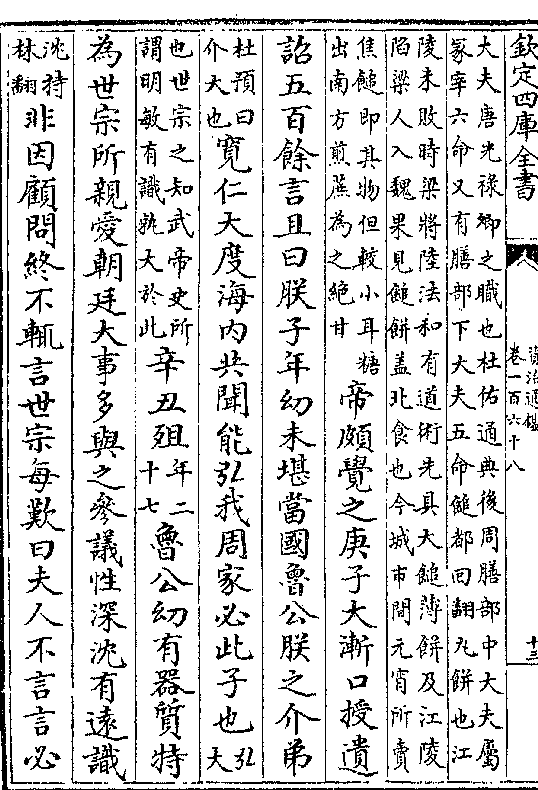 欽定四庫全書
資治通鑑
卷一百六十八
十三
大夫唐光祿卿之職也杜佑通典後周膳部中大夫屬
冡宰六命又有膳部下大夫五命䭔都回翻丸餅也江
陵未敗時梁將陸法和有道術先具大䭔薄餅及江陵
陷梁人入魏果見䭔餅盖北食也今城市間元宵所賣
焦䭔即其物但較小耳糖
出南方煎蔗為之絶甘
帝頗覺之庚子大漸口授遺
詔五百餘言且曰朕子年幼未堪當國魯公朕之介弟
杜預曰
介大也
寛仁大度海内共聞能弘我周家必此子也
弘
大
也世宗之知武帝史所
謂明敏有識孰大於此
辛丑殂
年二
十七
魯公幼有器質特
為世宗所親愛朝廷大事多與之參議性深沈有遠識
沈持
林翻
非因顧問終不輒言世宗每歎曰夫人不言言必